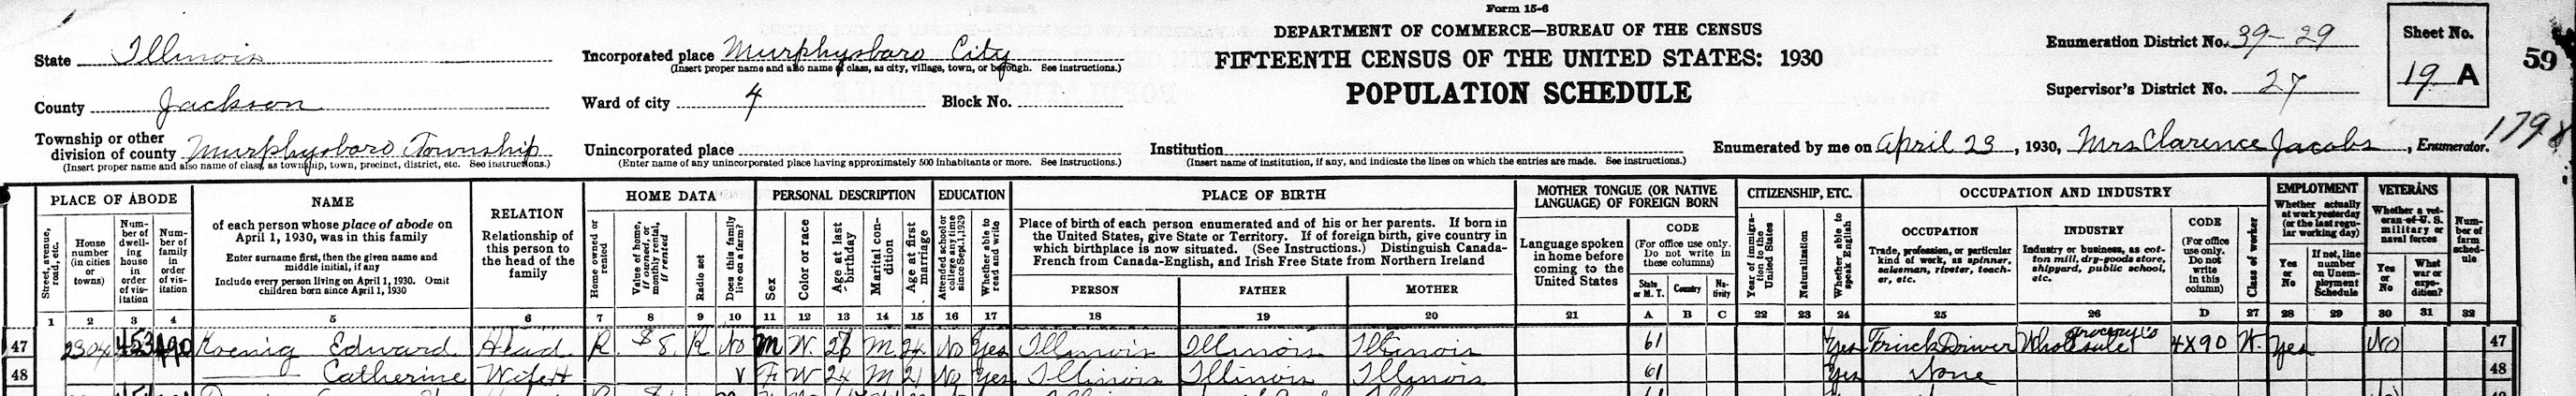 Form 15-6
State Illinois
Incorporated place Murphysboro City
(Insert proper name and also name of class, as city, village, town, or borough. See instructions.)
DEPARTMENT OF COMMERCE—BUREAU OF THE CENSUS
FIFTEENTH CENSUS OF THE UNITED STATES: 1930
POPULATION SCHEDULE
Enumeration District No. 39-29
Sheet No.
19 A
59
County Jackson
Ward of city 4 Block No.
Supervisor's District No. 27
Township or other
division of county Murphysboro Township
(Insert proper name and also name of class, as township, town, precinct, district, etc. See instructions.)
Unincorporated place
(Enter name of any unincorporated place having approximately 500 inhabitants or more. See instructions.)
Institution
(Insert name of institution, if any, and indicate the lines on which the entries are made. See instructions.)
Enumerated by me on April 23, 1930, Mrs Clarence Jacobs, Enumerator.
PLACE OF ABODE
Street, avenue, road, etc.
House number (in cities or towns)
Number of dwelling house in order of visitation
Number of family in order of visitation
NAME
of each person whose place of abode on
April 1, 1930, was in this family
Enter surname first, then the given name and
middle initial, if any
Include every person living on April 1, 1930. Omit
children born since April 1, 1930
RELATION
Relationship of
this person to
the head of the
family
HOME DATA
Home owned or rented
Value of home, if owned, or monthly rental, if rented
Radio set
Does this family live on a farm?
PERSONAL DESCRIPTION
Sex
Color or race
Age at last birthday
Marital condition
Age at first marriage
EDUCATION
Attended school or college any time since Sept. 1, 1929
Whether able to read and write
PLACE OF BIRTH
Place of birth of each person enumerated and of his or her parents. If born in
the United States, give State or Territory. If of foreign birth, give country in
which birthplace is now situated. (See Instructions.) Distinguish Canada-
French from Canada-English, and Irish Free State from Northern Ireland
PERSON FATHER MOTHER
MOTHER TONGUE (OR NATIVE
LANGUAGE) OF FOREIGN BORN
Language spoken
in home before
coming to the
United States
CODE
(For office use only.
Do not write in
these columns)
State or M. T.
Country
Nativity
CITIZENSHIP, ETC.
Year of immigration to the United States
Naturalization
Whether able to speak English
OCCUPATION AND INDUSTRY
OCCUPATION
Trade, profession, or particular
kind of work, as spinner,
salesman, riveter, teach-
er, etc.
INDUSTRY
Industry or business, as cot-
ton mill, dry-goods store,
shipyard, public school,
etc.
CODE
(For office
use only.
Do not
write
in this
column)
Class of worker
EMPLOYMENT
Whether actually
at work yesterday
(or the last regu-
lar working day)
Yes or No
If not, line number on Unemployment Schedule
VETERANS
Whether a vet-
eran of U. S.
military or
naval forces
Yes or No
What war or expedition?
Number of farm schedule
1 2 3 4 5 6 7 8 9 10 11 12 13 14 15 16 17 18 19 20 21 A B C 22 23 24 25 26 D 27 28 29 30 31 32
47 2304 453 490 Koenig Edward Head R $8. R No M W M 24 No Yes Illinois Illinois Illinois 61 Yes Truck Driver Wholesale 4X90 W Yes No 47
48 Catherine Wife H V F W 24 M 21 No Yes Illinois Illinois Illinois 61 Yes None 48